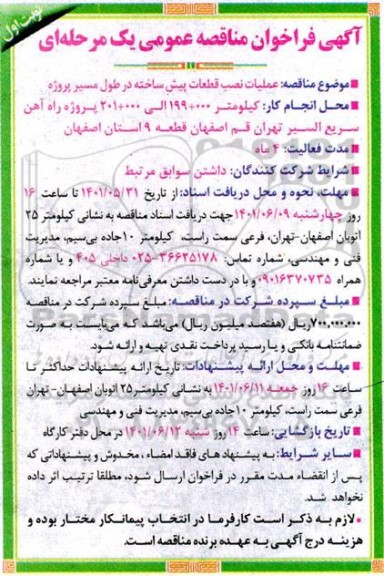 نوبت اول
آگهی فراخوان مناقصه عمومی یک مرحله‌ای
• موضوع مناقصه: عملیات نصب قطعات پیش ساخته در طول مسیر پروژه
• محل انجام کار: کیلومتر ۰۰۰+۱۹۹ الی ۰۰۰+۲۰۱ پروژه راه آهن
سریع السیر تهران قم اصفهان قطعه ۹ استان اصفهان
• مدت فعالیت: ۴ ماه
• شرایط شرکت کنندگان: داشتن سوابق مرتبط
• مهلت، نحوه و محل دریافت اسناد: از تاریخ ۱۴۰۱/۰۵/۳۱ تا ساعت ۱۶
روز چهارشنبه ۱۴۰۱/۰۶/۰۹ جهت دریافت اسناد مناقصه به نشانی کیلومتر ۲۵
اتوبان اصفهان-تهران، فرعی سمت راست، کیلومتر ۱۰ جاده بی‌سیم، مدیریت
فنی و مهندسی، شماره تماس: ۳۶۶۲۵۱۷۸-۰۲۵ داخلی ۴۰۵ و یا شماره
همراه ۰۹۰۱۶۳۷۰۷۳۵ و با در دست داشتن معرفی‌نامه معتبر مراجعه نمایند.
• مبلغ سپرده شرکت در مناقصه: مبلغ سپرده شرکت در مناقصه
۷۰۰,۰۰۰,۰۰۰ ریال (هفتصد میلیون ریال) می‌باشد که می‌بایست به صورت
ضمانتنامه بانکی و یا رسید پرداخت نقدی تهیه و ارائه شود.
• مهلت و محل ارائه پیشنهادات: تاریخ ارائه پیشنهادات حداکثر تا
ساعت ۱۶ روز جمعه ۱۴۰۱/۰۶/۱۱ به نشانی کیلومتر ۲۵ اتوبان اصفهان - تهران
فرعی سمت راست، کیلومتر ۱۰ جاده بی‌سیم، مدیریت فنی و مهندسی
• تاریخ بازگشایی: ساعت ۱۴ روز شنبه ۱۴۰۱/۰۶/۱۲ در محل دفتر کارگاه
• سایر شرایط: به پیشنهاد های فاقد امضاء، مخدوش و پیشنهاداتی که
پس از انقضاء مدت مقرر در فراخوان ارسال شود، مطلقا ترتیب اثر داده
نخواهد شد.
• لازم به ذکر است کارفرما در انتخاب پیمانکار مختار بوده و
هزینه درج آگهی به عهده برنده مناقصه است.